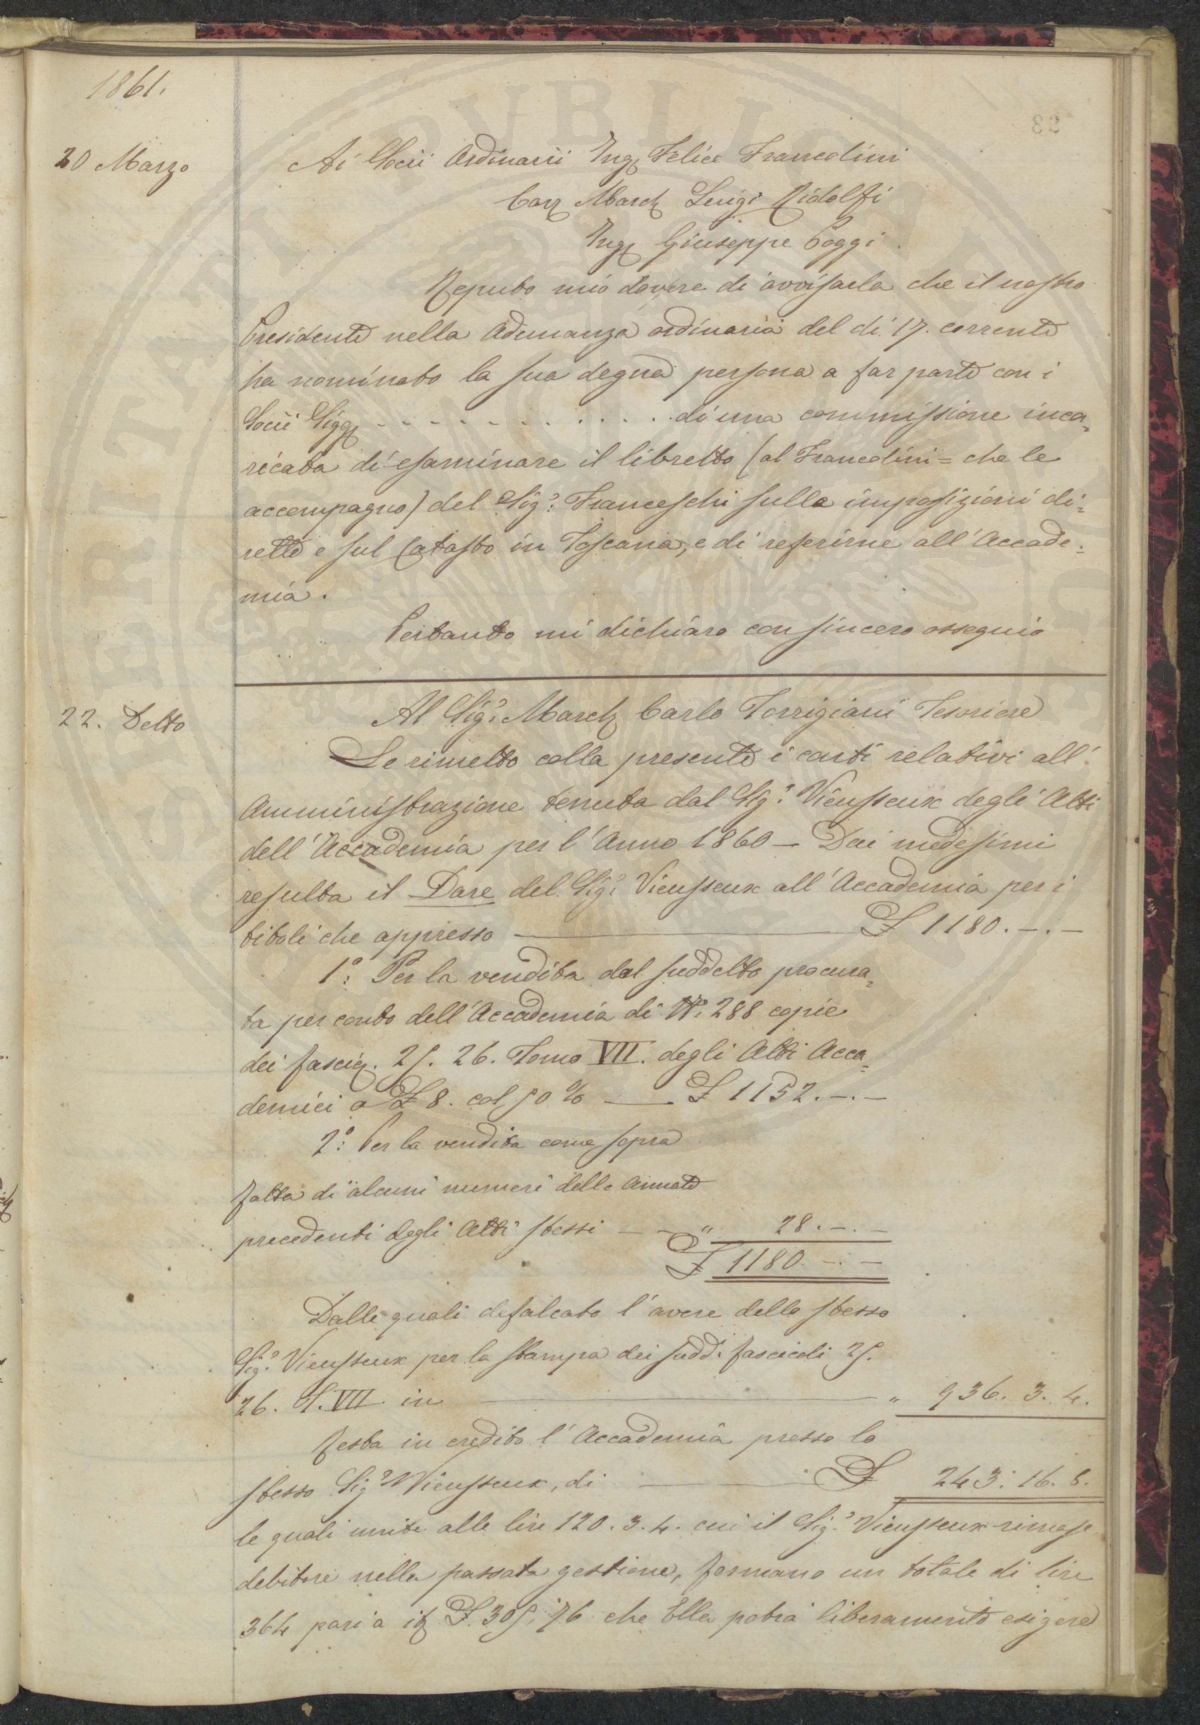 1861.
20 Marzo
Ai Socii Ordinarii Ing. Felice Francolini
Cav. March. Luigi Ridolfi
Ing. Giuseppe Poggi
Reputo mio dovere di avvisarla che il nostro
Presidente nella Adunanza ordinaria del dì 17. corrente
ha nominato la sua degna persona a far parte con i
Socii Sigg. - - - - - - - - - - - di una commissione inca=
ricata di esaminare il libretto (al Francolini = che le
accompagno) del Sigr. Franceschi sulle imposizioni di=
rette e sul Catasto in Toscana, e di referirne all'Accade=
mia.
Pertanto mi dichiaro con sincero ossequio
22. Detto
Al Sigr. March. Carlo Torrigiani Tesoriere
Le rimetto colla presente i conti relativi all'
Amministrazione tenuta dal Sigr. Vieusseux degli Atti
dell'Accademia per l'Anno 1860 — Dai medesimi
resulta il Dare del Sigr. Vieusseux all'Accademia per i
titoli che appresso — £ 1180. -. -
1o: Per la vendita dal suddetto procura=
ta per conto dell'Accademia di No. 288 copie
dei fascic. 25. 26. Tomo VII. degli Atti Acca=
demici a £ 8. col 50 % — £ 1152. -. -
2o: Per la vendita come sopra
fatta di alcuni numeri delle annate
precedenti degli Atti stessi — " 28. -. -
£ 1180. -. -
Dalle quali defalcato l'avere dello stesso
Sigr. Vieusseux per la stampa dei sudd. fascicoli 25.
26. T. VII. in — " 936. 3. 4.
resta in credito l'Accademia presso lo
stesso Sigr. Vieusseux, di — £ 243. 16. 8.
le quali unite alle lire 120. 3. 4. cui il Sigr. Vieusseux rimase
debitore nella passata gestione, formano un totale di lire
364 pari a it. £. 305. 76 che Ella potrà liberamente esigere